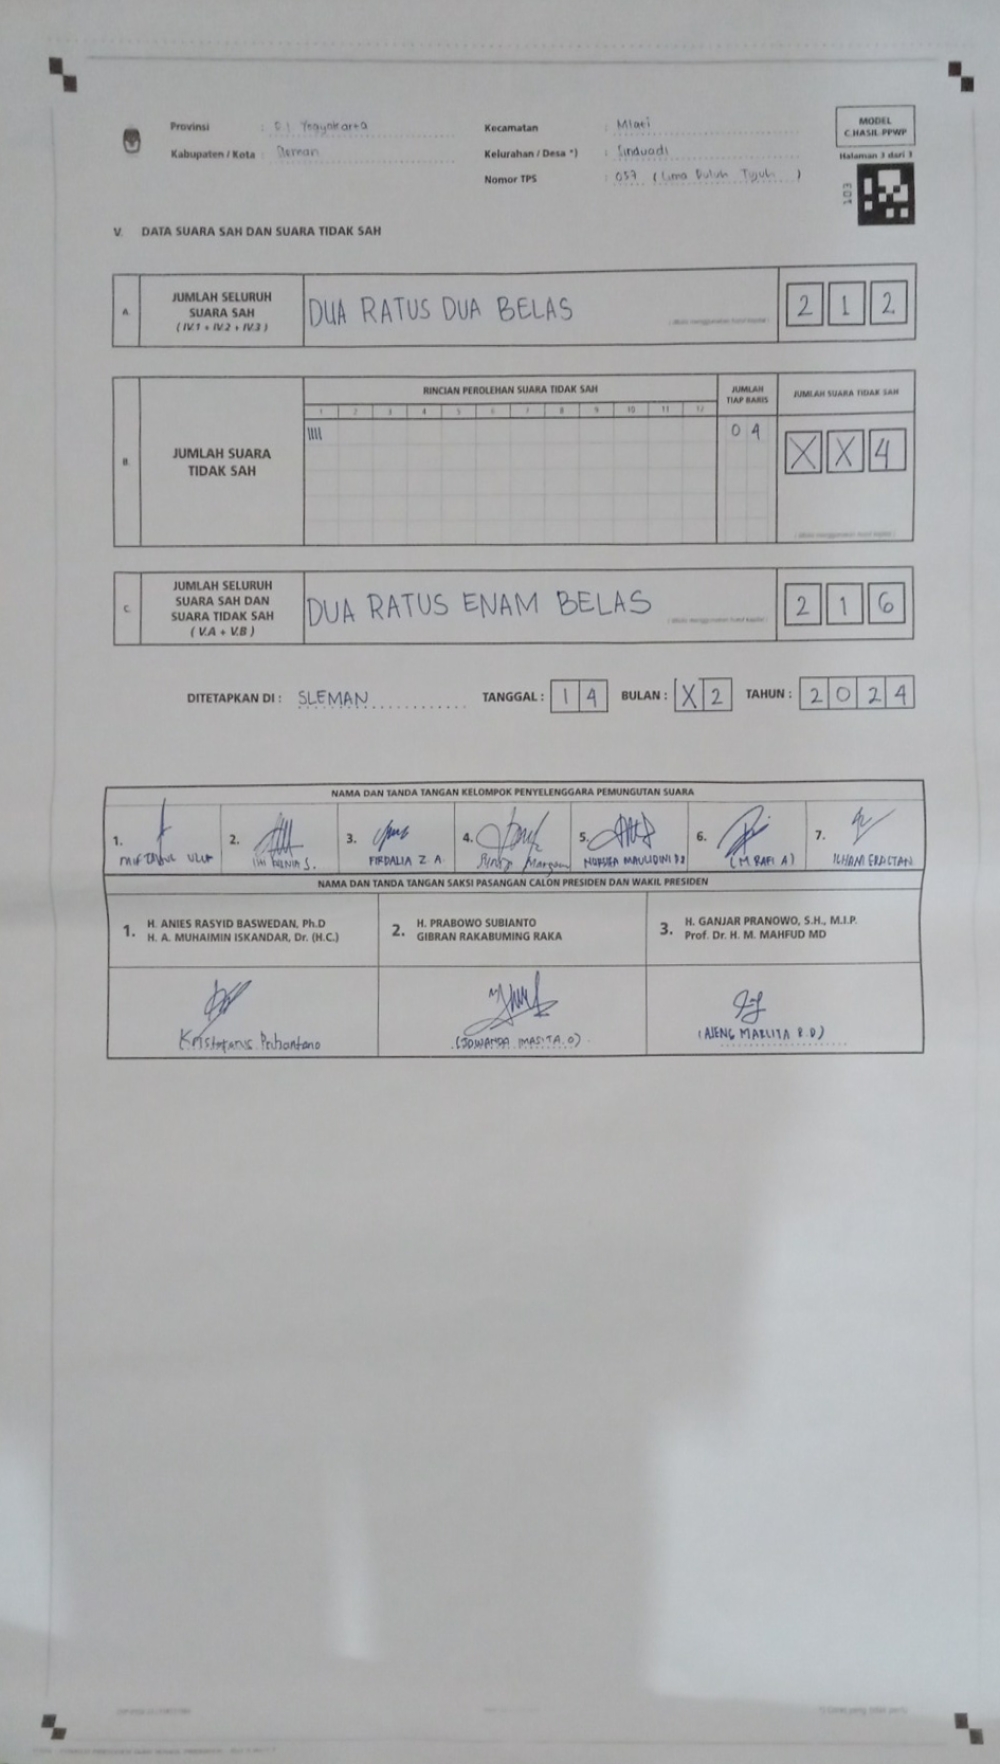 Provinsi : D.I Yogyakarta
Kabupaten / Kota : Sleman
Kecamatan : Mlati
Kelurahan / Desa *) : Sinduadi
Nomor TPS : 057 ( Lima Puluh Tujuh )
MODEL
C.HASIL-PPWP
Halaman 3 dari 3
103
V. DATA SUARA SAH DAN SUARA TIDAK SAH
A. JUMLAH SELURUH
SUARA SAH
( IV.1 + IV.2 + IV.3 )
DUA RATUS DUA BELAS
2 1 2
RINCIAN PEROLEHAN SUARA TIDAK SAH
JUMLAH
TIAP BARIS
JUMLAH SUARA TIDAK SAH
1 2 3 4 5 6 7 8 9 10 11 12
B. JUMLAH SUARA
TIDAK SAH
IIII
0 4
X X 4
C. JUMLAH SELURUH
SUARA SAH DAN
SUARA TIDAK SAH
( V.A + V.B )
DUA RATUS ENAM BELAS
2 1 6
DITETAPKAN DI : SLEMAN TANGGAL : 1 4 BULAN : X 2 TAHUN : 2 0 2 4
NAMA DAN TANDA TANGAN KELOMPOK PENYELENGGARA PEMUNGUTAN SUARA
1. 2. 3. 4. 5. 6. 7.
FIRDALIA Z A.
(M RAFI A)
NAMA DAN TANDA TANGAN SAKSI PASANGAN CALON PRESIDEN DAN WAKIL PRESIDEN
1. H. ANIES RASYID BASWEDAN, Ph.D
H. A. MUHAIMIN ISKANDAR, Dr. (H.C.)
2. H. PRABOWO SUBIANTO
GIBRAN RAKABUMING RAKA
3. H. GANJAR PRANOWO, S.H., M.I.P.
Prof. Dr. H. M. MAHFUD MD
Kristofanus Prihantono
(JOWANDA IMASITA.O)
(AJENG MARLITA R.D)